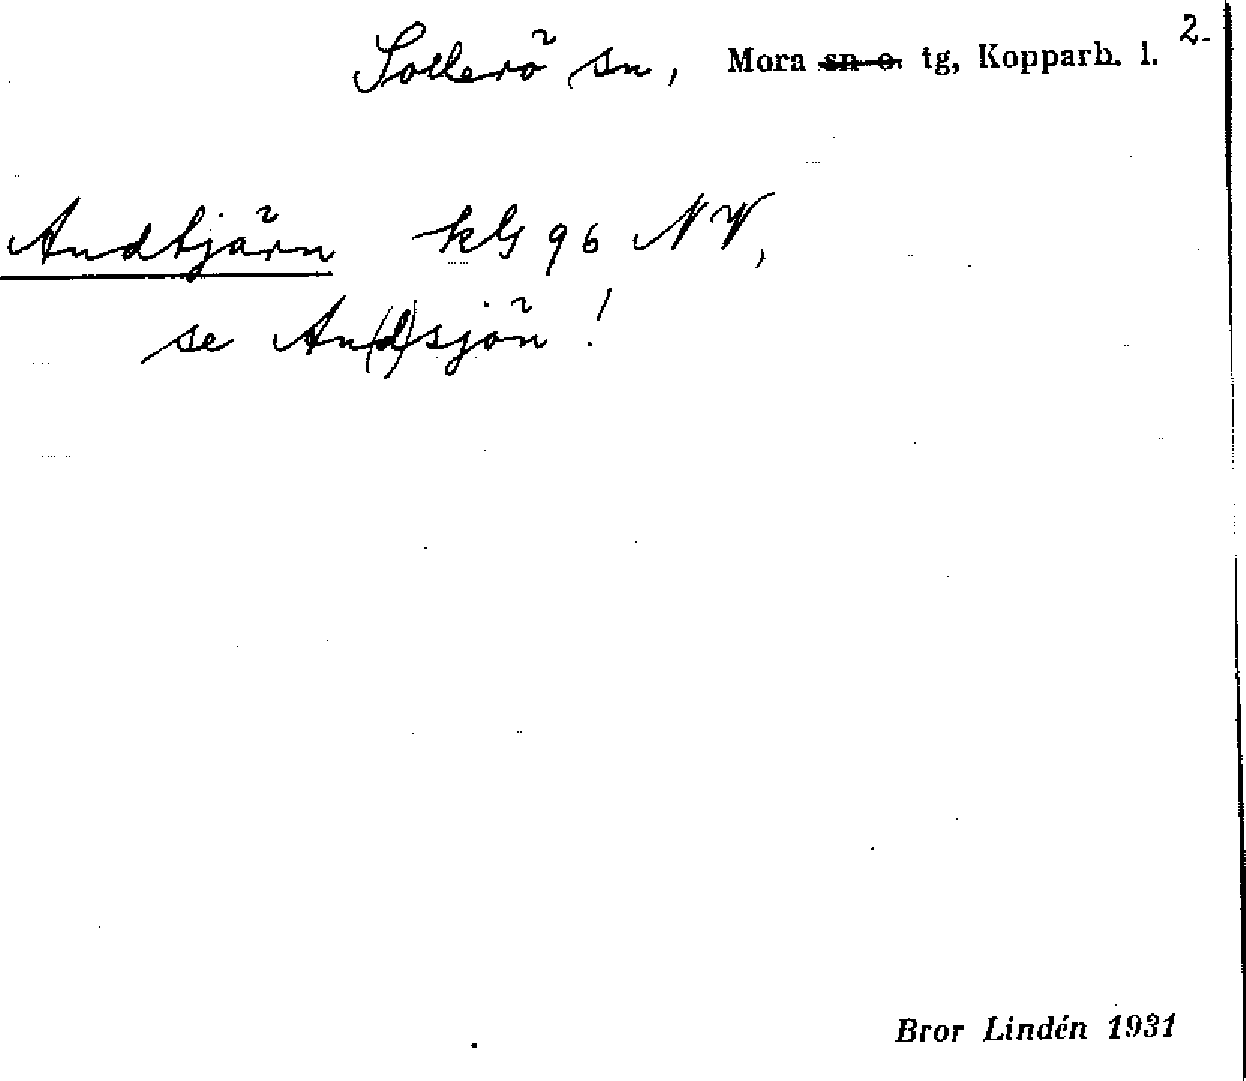 Sollerö sn, Mora sn o. tg, Kopparb. l. 2.
Andtjärn kbl 96 NV,
se An(d)sjön!
Bror Lindén 1931